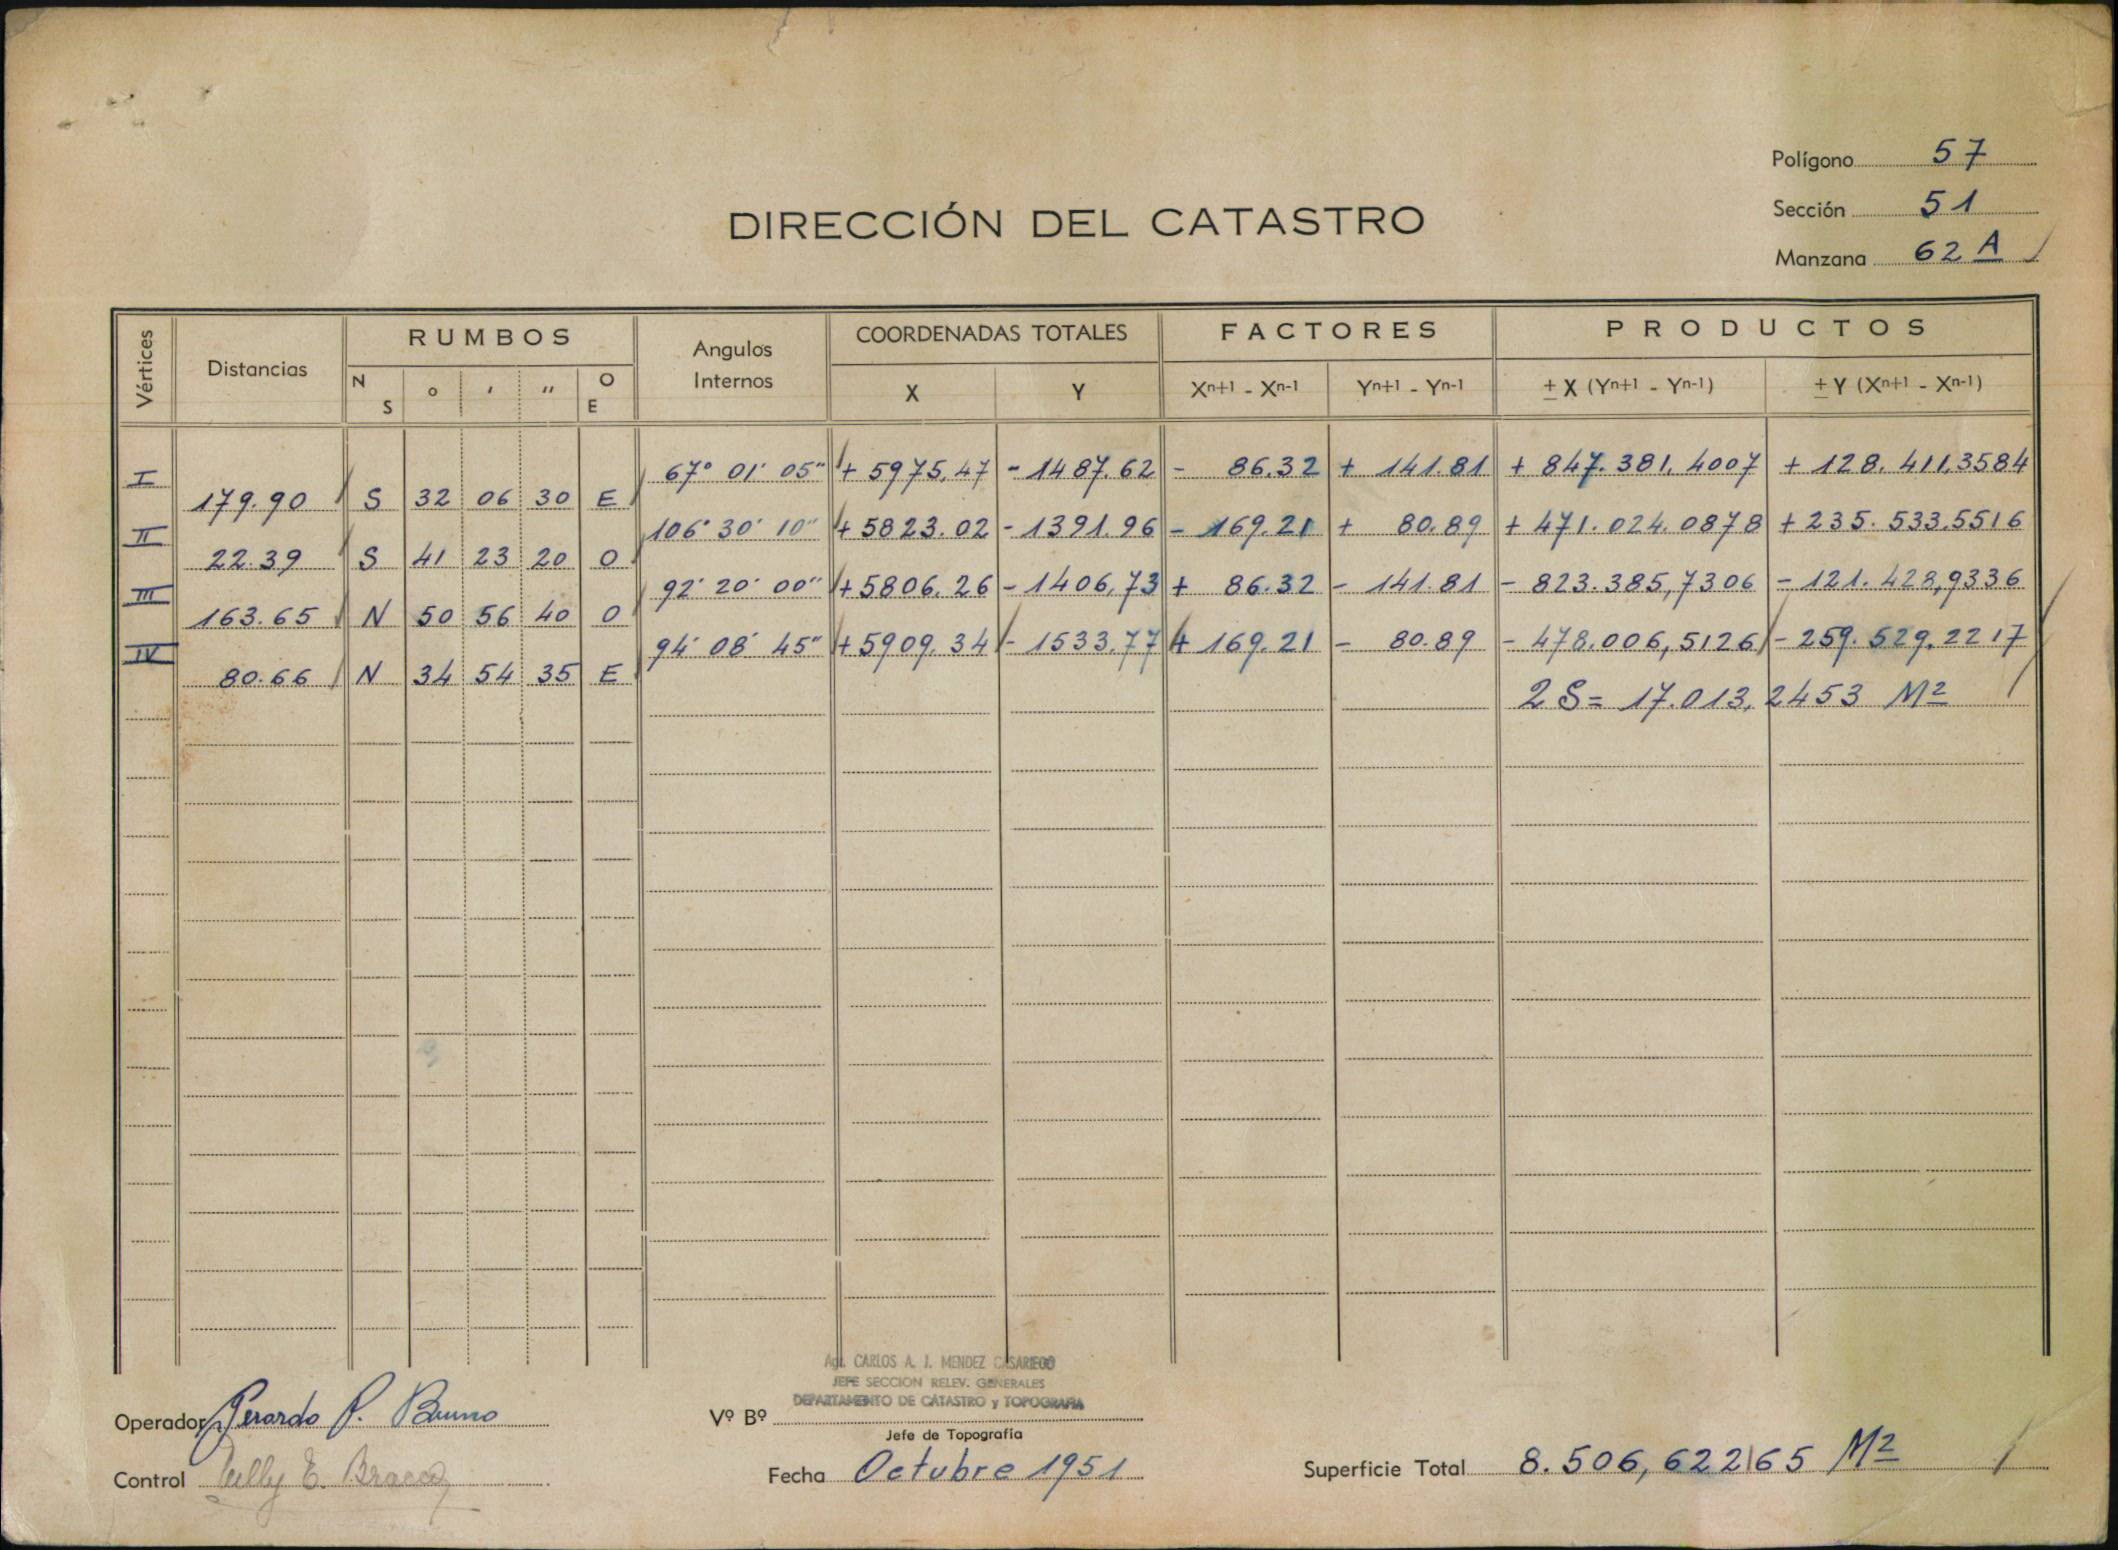 Polígono 57
Sección 51
Manzana 62 A
DIRECCIÓN DEL CATASTRO
Vértices Distancias RUMBOS Angulos Internos COORDENADAS TOTALES FACTORES PRODUCTOS
N S ° ' " O E X Y Xn+1 - Xn-1 Yn+1 - Yn-1 ± X (Yn+1 - Yn-1) ± Y (Xn+1 - Xn-1)
I 67° 01' 05" + 5975,47 - 1487.62 - 86.32 + 141.81 + 847.381.4007 + 128.411,3584
179.90 S 32 06 30 E
II 106° 30' 10" + 5823.02 - 1391.96 - 169.21 + 80.89 + 471.024.0878 + 235.533.5516
22.39 S 41 23 20 O
III 92° 20' 00" + 5806.26 - 1406,73 + 86.32 - 141.81 - 823.385,7306 - 121.428,9336
163.65 N 50 56 40 O
IV 94° 08' 45" + 5909.34 - 1533.77 + 169.21 - 80.89 - 478.006,5126 - 259.529.2217
80.66 N 34 54 35 E
2 S = 17.013,2453 M2
Agr. CARLOS A. J. MENDEZ CASARIEGO
JEFE SECCION RELEV. GENERALES
DEPARTAMENTO DE CATASTRO y TOPOGRAFIA
Operador Gerardo P. Bruno
Vº Bº
Jefe de Topografía
Control
Fecha Octubre 1951
Superficie Total 8.506,622|65 M2